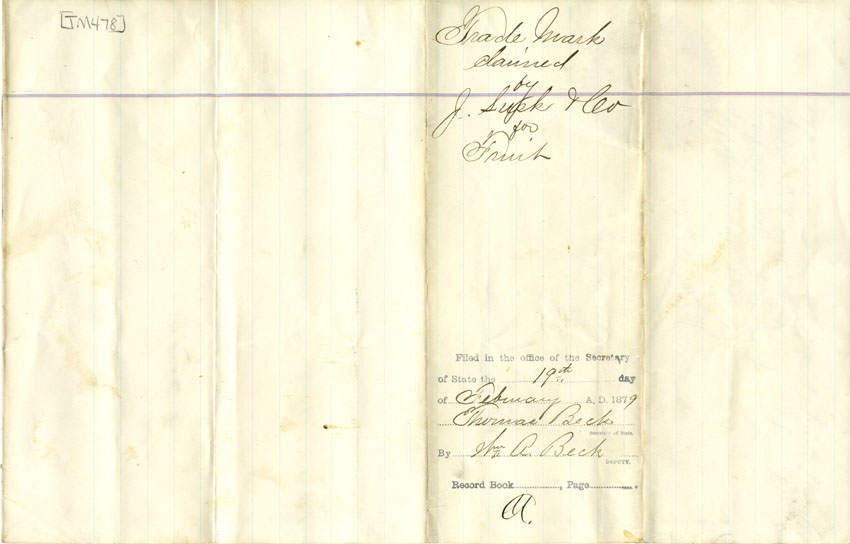 [TM478]
Trade Mark
claimed
by
J. Lusk & Co
for
Fruit
Filed in the office of the Secretary
of State the 19th day
of February A. D. 1879
Thomas Beck
Secretary of State.
By Wm A Beck
DEPUTY.
Record Book , Page .
A.